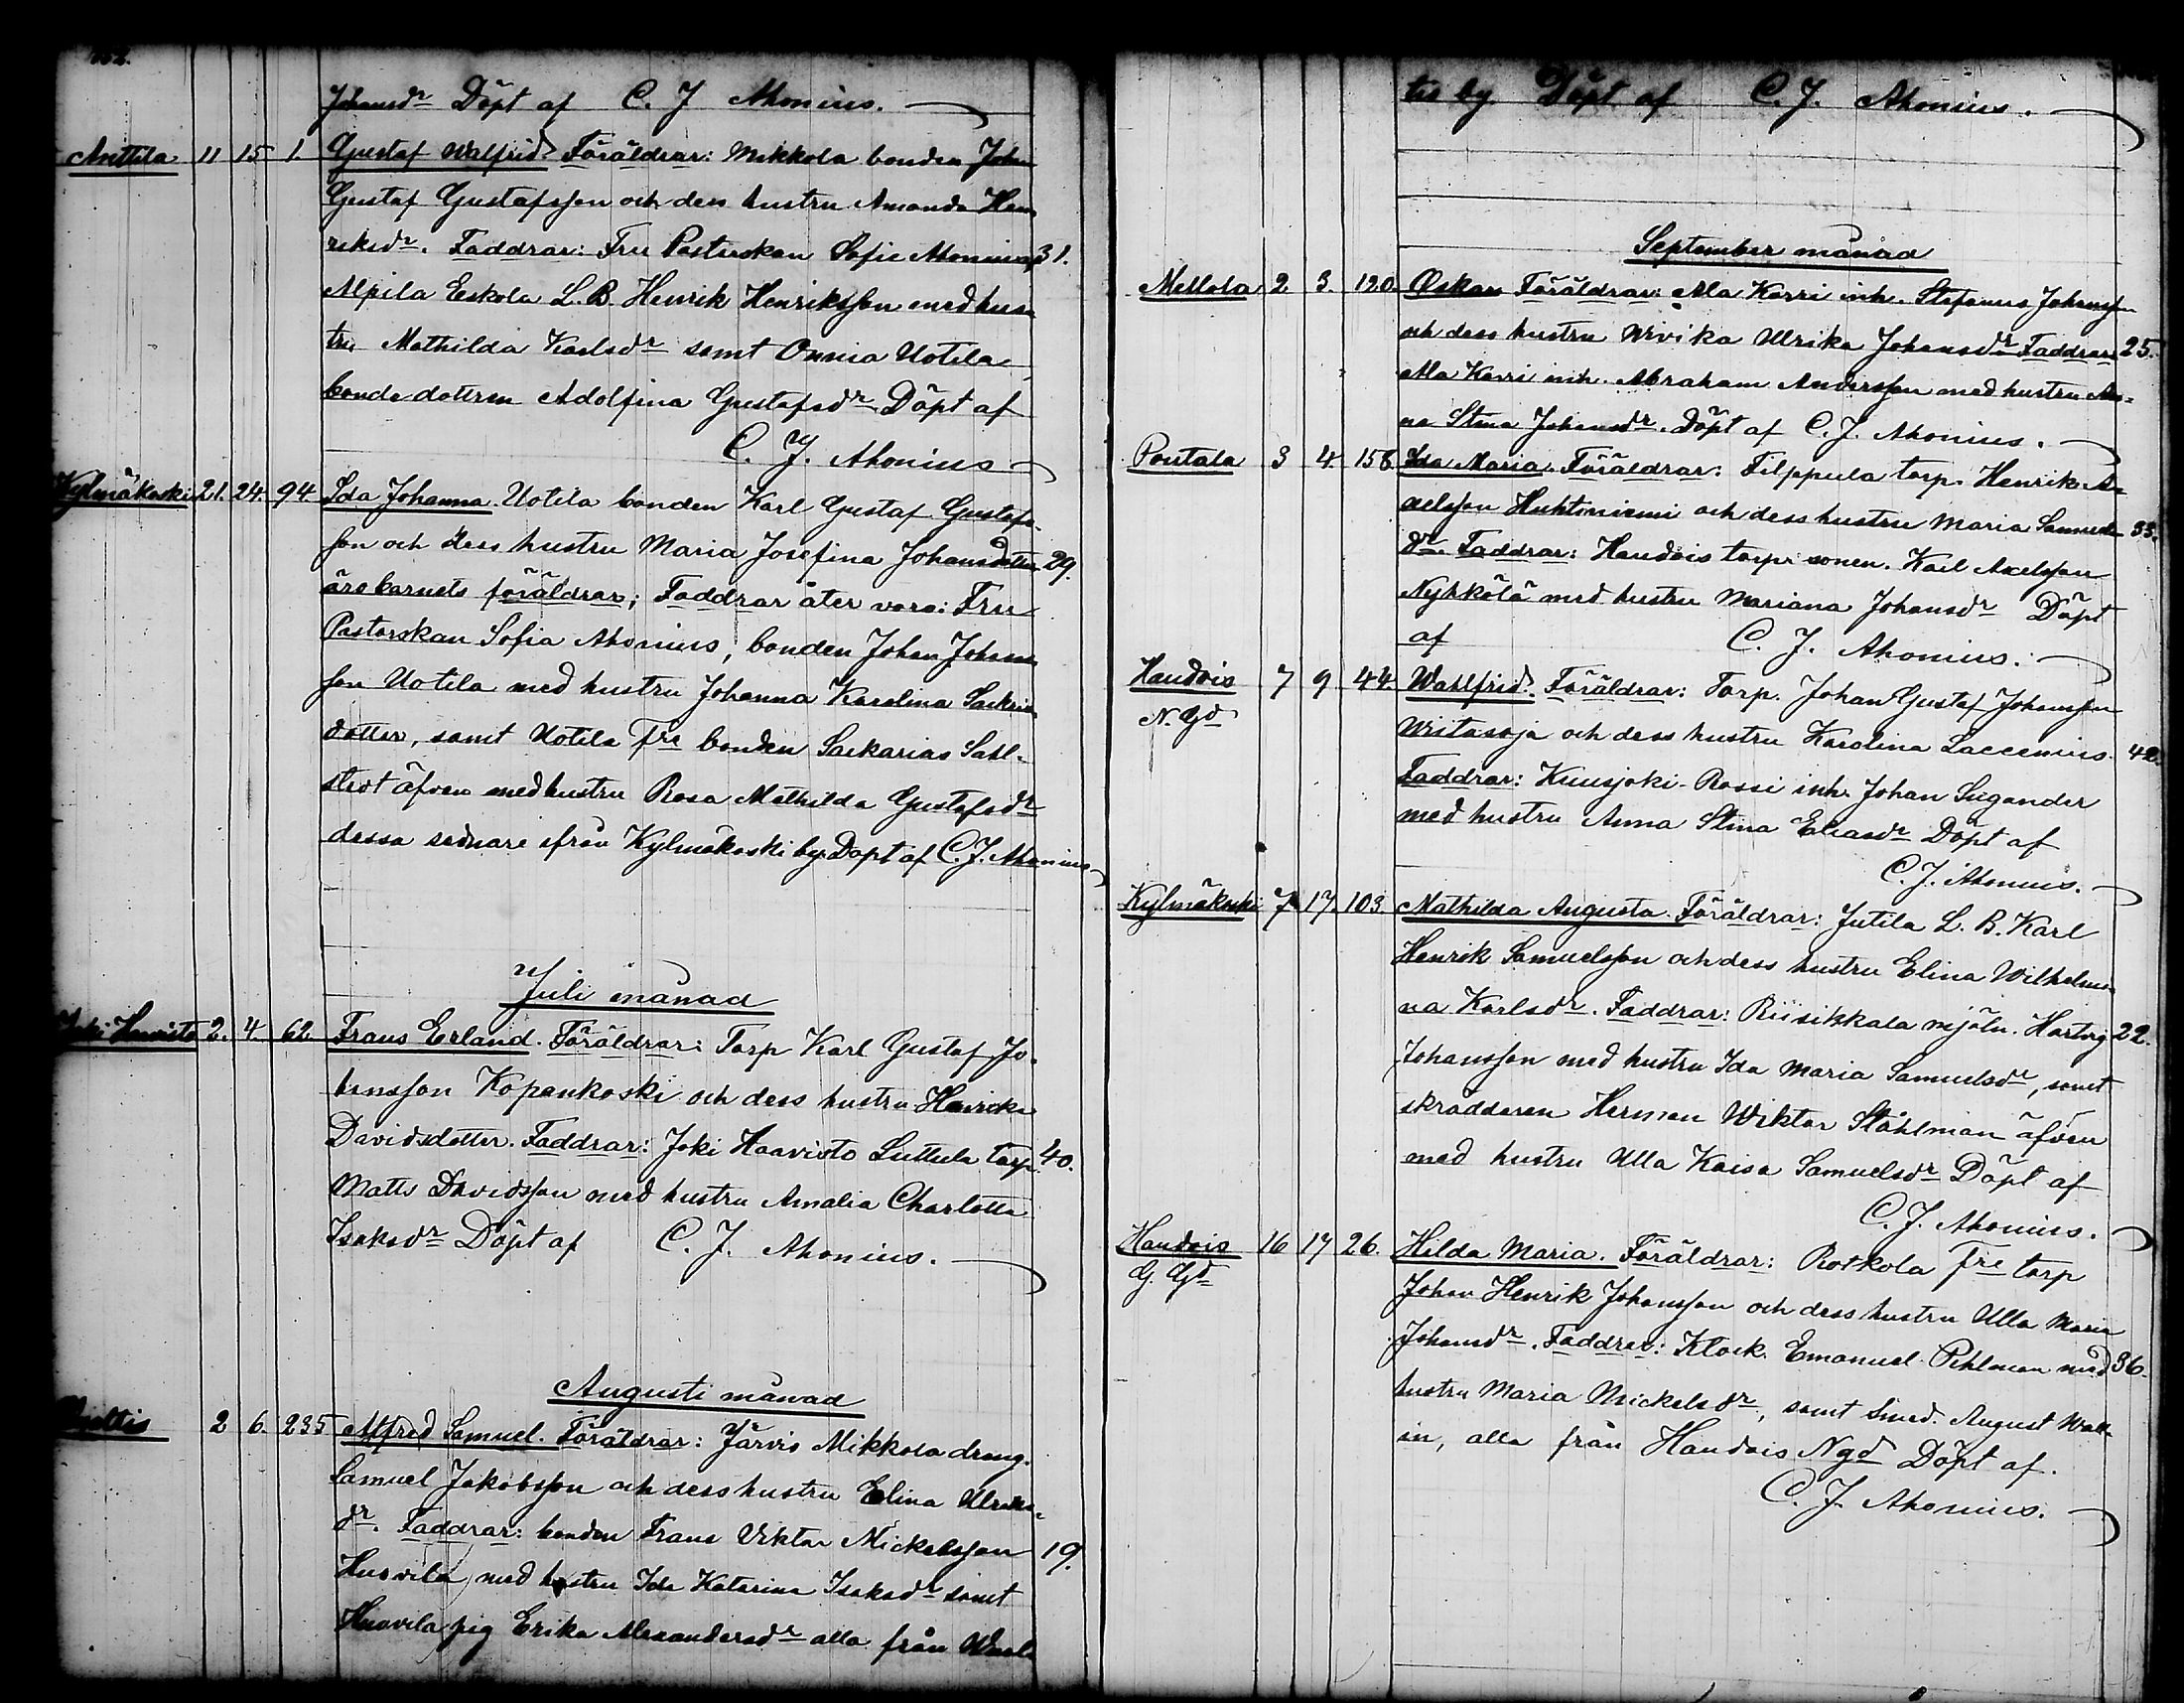 Johansdr Döpt af C. J. Ahonius.
Anttila 11 15 1. Gustaf Walfrid. Föräldrar: Mikkola bonden Johan
Gustaf Gustafsson och dess hustru Amanda Hen-
riksdr. Faddrar: Fru Pastorskan Sofie Ahonius, 31.
Alpila Eskola L. B. Henrik Henriksson med hus-
tru Mathilda Karlsdr samt Onnia Uotila
bondedottren Adolfina Gustafsdr Döpt af
C. J. Ahonius
Kylmäkoski 21. 24. 94 Ida Johanna. Uotila bonden Karl Gustaf Gustafs-
son och dess hustru Maria Josefina Johansdotter 29.
äro barnets föräldrar; Faddrar åter voro: Fru
Pastorskan Sofia Ahonius; bonden Johan Johans-
son Uotila med hustru Johanna Karolina Sackris-
dotter, samt Uotila fre bonden Sackarias Sahl-
stedt äfven med hustru Rosa Mathilda Gustafsdr
dessa sednare ifrån Kylmäkoski by. Döpt af C. J. Ahonius
Juli månad
Joki Haavisto 2. 4. 62. Frans Erland. Föräldrar: Torp Karl Gustaf Jo-
hansson Kopankoski och dess hustru Henrika
Davidsdotter. Faddrar: Joki Haavisto Luttula torp. 40.
Matts Davidsson med hustru Amalia Charlotta
Isaksdr Döpt af C. J. Ahonius.
Augusti månad
2 6. 235 Alfred Samuel. Föräldrar: Järvis Mikkola dreng.
Samuel Jakobsson och dess hustru Elina Ulriks-
dr. Faddrar: bonden Frans Viktor Mickelsson 19.
Huovila med hustru Ida Katarina Isaksdr samt
Huovila pig Erika Alexandersdr alla från
tis by. Döpt af C. J. Ahonius.
September månad
Mellola 2. 3. 120. Oskar Föräldrar: Ala Korri inh. Stefanus Johansson
och dess hustru Wivika Ulrika Johansdr Faddrar: 25.
Ala Korri inh. Abraham Andersson med hustru An-
na Stina Johansdr. Döpt af C. J. Ahonius.
Pontala 3 4. 158 Ida Maria. Föräldrar: Filppula torp. Henrik A-
xelsson Huhtiniemi och dess hustru Maria Samuels- 33.
dr. Faddrar: Haudois torpar sonen. Karl Axelsson
Nyhkölä med hustru Mariana Johansdr Döpt
af C. J. Ahonius.
Haudois 7 9 44. Wahlfrid. Föräldrar: Torp. Johan Gustaf Johansson
N. Gd
Wiitasoja och dess hustru Karolina Laccenius. 42.
Faddrar: Kuusjoki-Rossi inh. Johan Sugander
med hustru Anna Stina Eliasdr Döpt af
C. J. Ahonius.
Kylmäkoski 7 17. 103. Mathilda Augusta. Föräldrar: Jutila L. B. Karl
Henrik Samuelsson och dess hustru Elina Wilhelmi-
na Karlsdr. Faddrar: Riisikkala mjöln. Hartvig 22.
Johansson med hustru Ida Maria Samuelsdr, samt
skräddaren Herman Wiktor Ståhlman äfven
med hustru Ulla Kaisa Samuelsdr Döpt af
C. J. Ahonius.
Haudois 16 17 26. Hilda Maria. Föräldrar: Rotkola fre torp
G. Gd
Johan Henrik Johansson och dess hustru Ulla Maria
Johansdr. Faddrar: Klock. Emanuel Pihlman med 36.
hustru Maria Mickelsdr, samt Smed. August Wall-
in, alla från Haudois Ngd Döpt af.
C. J. Ahonius.